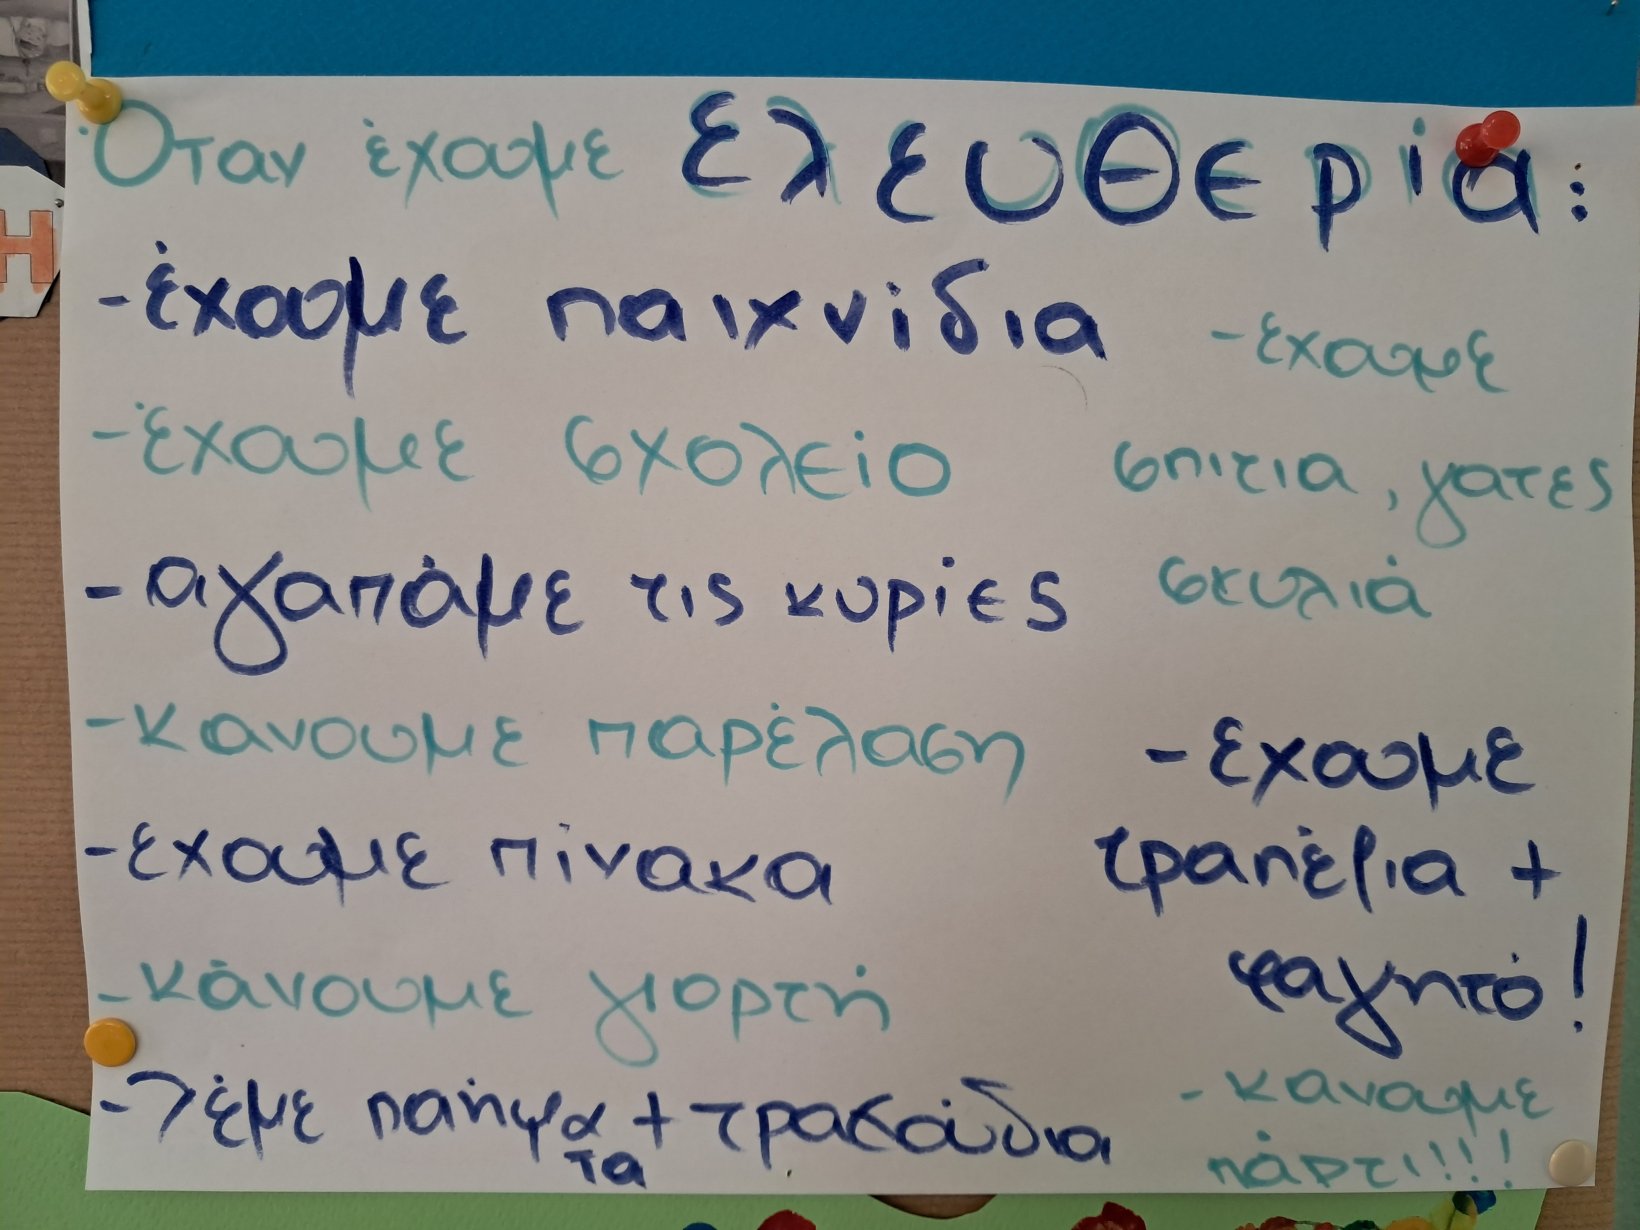 Όταν έχουμε ελευθερία:
-έχουμε παιχνίδια
-έχουμε σχολείο
-αγαπάμε τις κυρίες
-κανουμε παρέλαση
-εχουμε πίνακα
-κάνουμε γιορτή
-λέμε ποιήμα
τα
+ τραγούδια
-εχουμε
σπιτια, γατες
σκυλιά
-εχουμε
τραπέζια +
φαγητό!
-κανουμε
πάρτι!!!!
Η